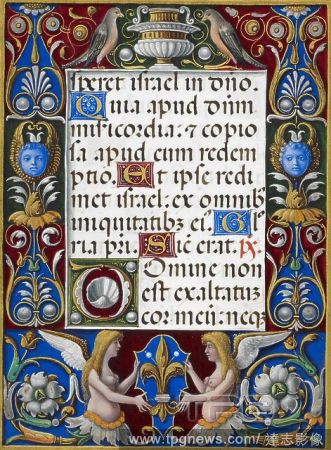 speret israel in dño.
Quia apud dũm
misericordia: ⁊ copio
sa apud eum redem
ptio. Et ipse redi
met israel: ex omnib
iniquitatibʒ eiꝰ. Glo
ria pri. Sic erat. ix.
Domine non
est exaltatũ
cor meũ: neqꝫ
www.tpgnews.com/達志影像